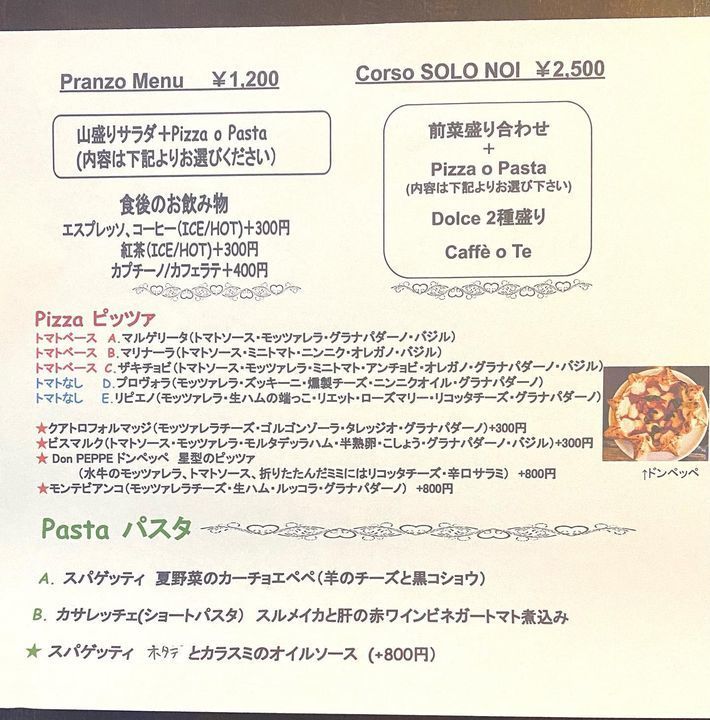 Pranzo Menu ￥1,200
山盛りサラダ＋Pizza o Pasta
(内容は下記よりお選びください)
食後のお飲み物
エスプレッソ、コーヒー(ICE/HOT)+300円
紅茶(ICE/HOT)+300円
カプチーノ/カフェラテ+400円
Corso SOLO NOI ￥2,500
前菜盛り合わせ
+
Pizza o Pasta
(内容は下記よりお選び下さい)
Dolce 2種盛り
Caffè o Te
Pizza ピッツァ
トマトベース A.マルゲリータ(トマトソース・モッツァレラ・グラナパダーノ・バジル)
トマトベース B.マリナーラ(トマトソース・ミニトマト・ニンニク・オレガノ・バジル)
トマトベース C.ザキチョビ(トマトソース・モッツァレラ・ミニトマト・アンチョビ・オレガノ・グラナパダーノ・バジル)
トマトなし D.プロヴォラ(モッツァレラ・ズッキーニ・燻製チーズ・ニンニクオイル・グラナパダーノ)
トマトなし E.リピエノ(モッツァレラ・生ハムの端っこ・リエット・ローズマリー・リコッタチーズ・グラナパダーノ)
★クアトロフォルマッジ(モッツァレラチーズ・ゴルゴンゾーラ・タレッジオ・グラナパダーノ)+300円
★ビスマルク(トマトソース・モッツァレラ・モルタデッラハム・半熟卵・こしょう・グラナパダーノ・バジル)+300円
★ Don PEPPE ドンペッペ 星型のピッツァ
(水牛のモッツァレラ、トマトソース、折りたたんだミミにはリコッタチーズ・辛口サラミ) +800円
★モンテビアンコ(モッツァレラチーズ・生ハム・ルッコラ・グラナパダーノ) +800円
↑ドンペッペ
Pasta パスタ
A. スパゲッティ 夏野菜のカーチョエペペ(羊のチーズと黒コショウ)
B. カサレッチェ(ショートパスタ) スルメイカと肝の赤ワインビネガートマト煮込み
★ スパゲッティ ホタテとカラスミのオイルソース (+800円)